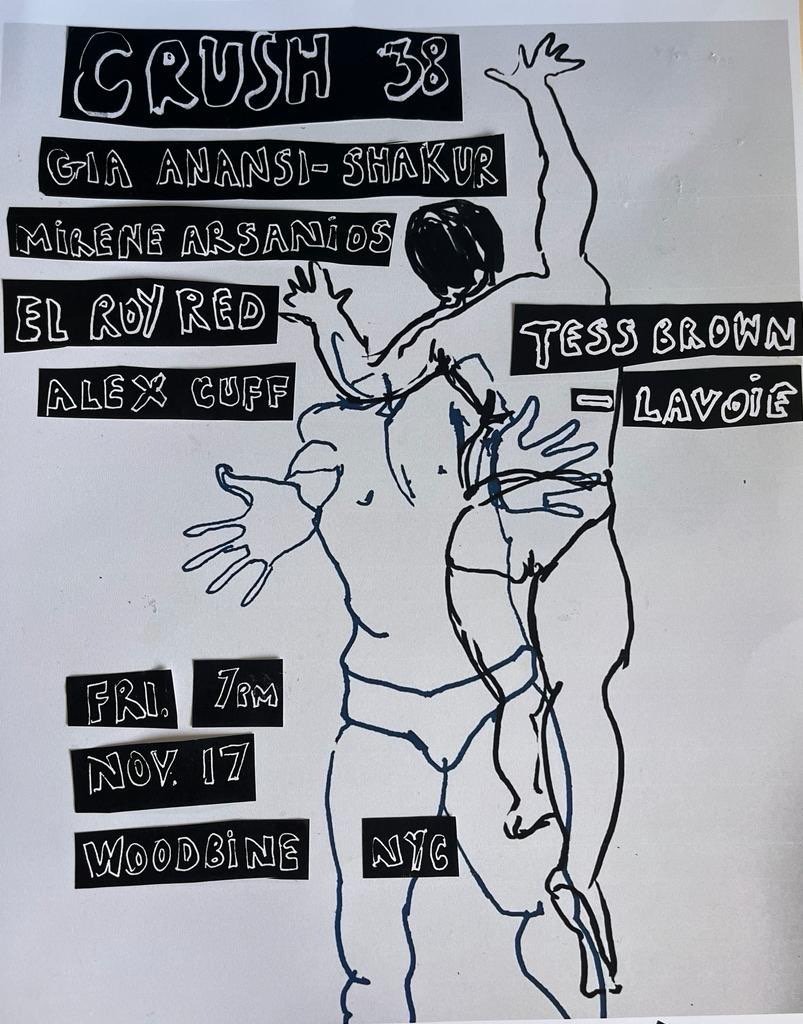 CRUSH 38
GIA ANANSI-SHAKUR
MIRENE ARSANIOS
EL ROY RED
TESS BROWN
- LAVOIE
ALEX CUFF
FRI. 7PM
NOV. 17
WOODBINE NYC